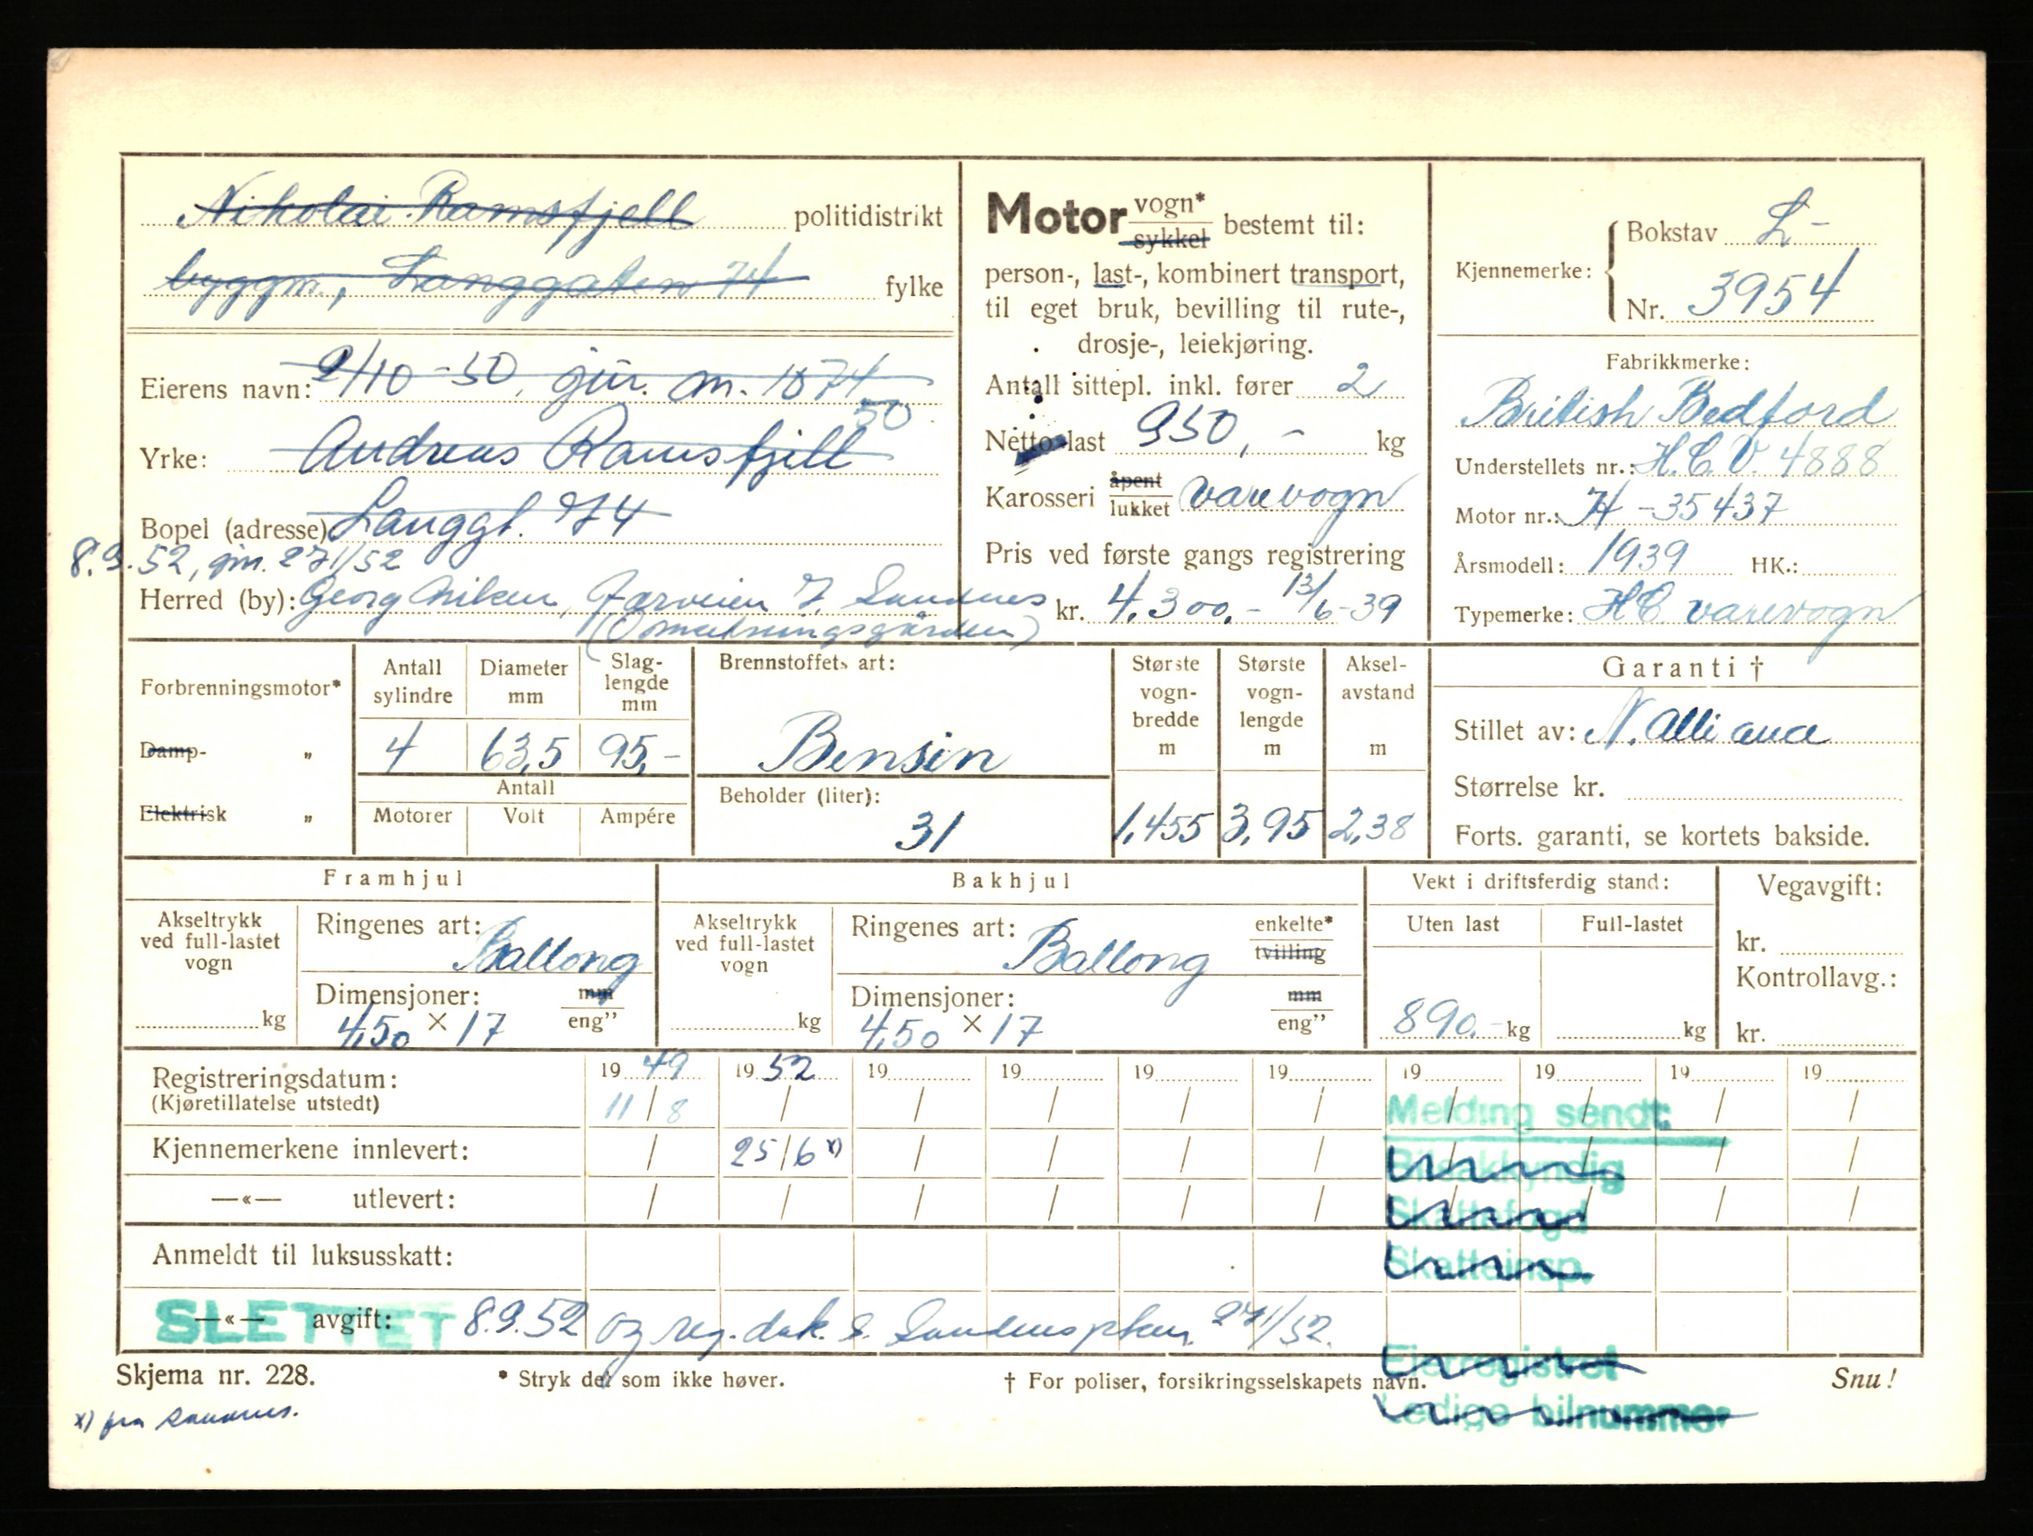 Nikolai Ramsfjell politidistrikt
byggm., Langgaten 74 fylke
Eierens navn: 9/10-50, jnr. m. 1074/50
Yrke: Andreas Ramsfjell
Bopel (adresse) Langgt. 74
8.9.52, jnr. 271/52
Herred (by): Georg , Jærveien 7, Sandnes
Motor vogn* sykkel bestemt til:
person-, last-, kombinert transport,
til eget bruk, bevilling til rute-,
drosje-, leiekjøring.
Antall sittepl. inkl. fører 2
Netto last 350,- kg
Karosseri åpent lukket varevogn
Pris ved første gangs registrering
kr. 4.300.- 13/6-39
Kjennemerke: Bokstav L-
Nr. 3954
Fabrikkmerke:
British Bedford
Understellets nr.: H.C.V. 4888
Motor nr.: H-35437
Årsmodell: 1939 HK.:
Typemerke: HC varevogn
Forbrenningsmotor*
Damp- „
Elektrisk „
Antall sylindre 4
Diameter mm 63,5
Slag-lengde mm 95,-
Antall
Motorer Volt Ampére
Brennstoffets art:
Bensin
Beholder (liter):
31
Største vogn-bredde m 1,455
Største vogn-lengde m 3,95
Aksel-avstand m 2,38
Garanti †
Stillet av: N. Alliance
Størrelse kr.
Forts. garanti, se kortets bakside.
Framhjul
Akseltrykk ved full-lastet vogn kg
Ringenes art: Ballong
Dimensjoner: mm eng”
4,50 × 17
Bakhjul
Akseltrykk ved full-lastet vogn kg
Ringenes art: Ballong enkelte* tvilling
Dimensjoner: mm eng”
4,50 × 17
Vekt i driftsferdig stand:
Uten last Full-lastet
890.- kg kg
Vegavgift:
kr.
Kontrollavg.:
kr.
Registreringsdatum: 1949 1952 19 19 19 19 19 19 19 19
(Kjøretillatelse utstedt) 11/8 / / / / / / / / /
Melding sendt:
Kjennemerkene innlevert: / 25/6 x) / / / / / / / /
Bilsakkyndig
—«— utlevert: / / / / / / / / / /
Skattefogd
Anmeldt til luksusskatt:
Skatteinsp.
SLETTET
—«— avgift: 8.9.52 og reg. dak. s. Sandnes pkm. 271/52.
Eierregistret
Ledige bilnummer
Skjema nr. 228. * Stryk det som ikke høver. † For poliser, forsikringsselskapets navn. Snu!
x) fra Sandnes.